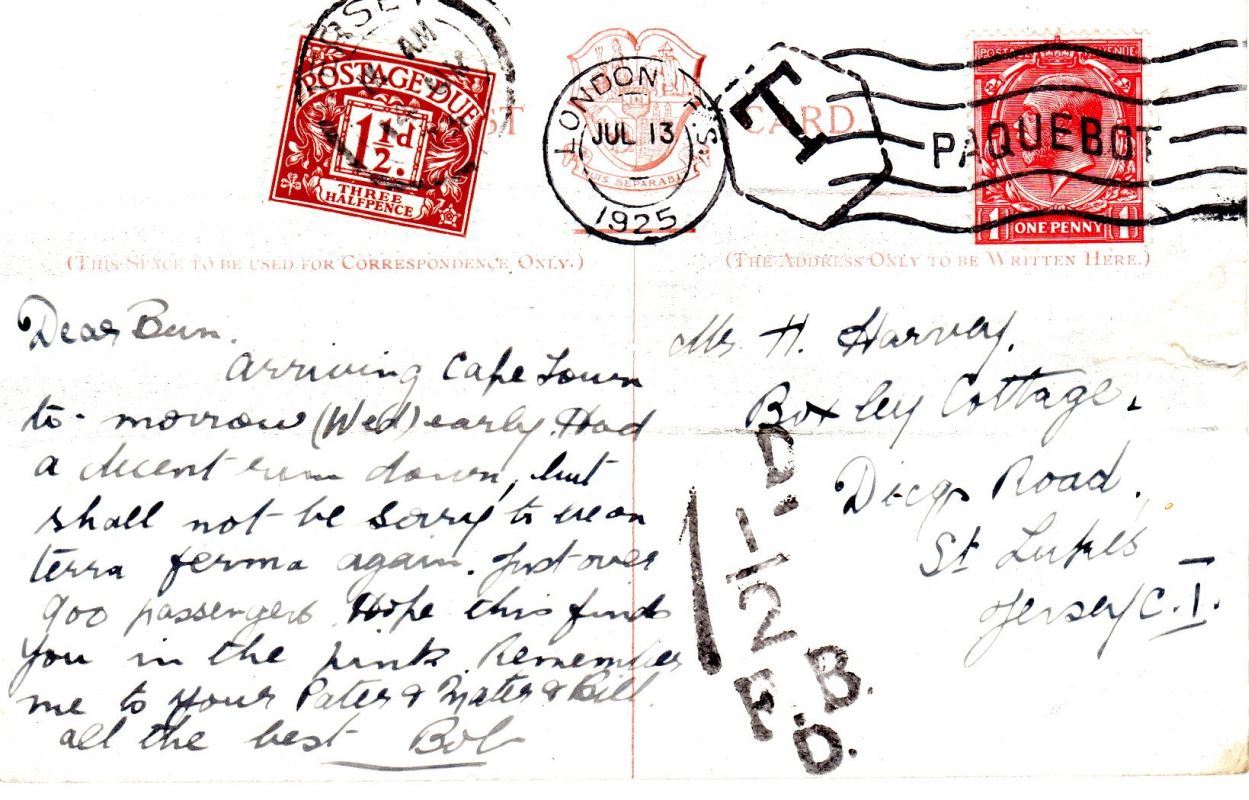 JERSEY
AM
POSTAGE DUE
1½d.
THREE
HALFPENCE
POST CARD
QUIS SEPARABIT
LONDON F.S.
JUL 13
1925
T
PAQUEBOT
POSTAGE REVENUE
1 ONE PENNY 1
(THIS SPACE TO BE USED FOR CORRESPONDENCE ONLY.)
(THE ADDRESS ONLY TO BE WRITTEN HERE.)
Dear Bun.
Arriving Cape Town
to-morrow (Wed) early. Had
a decent run down, but
shall not be sorry to be on
terra ferma again. Just over
900 passengers. Hope this finds
you in the pink. Remember
me to your Pater & Mater & Bill.
all the best Bob
Mr H. Harvey.
Boxley Cottage.
Dicq Road.
St Lukes
Jersey C.I.
1½D
F.B.
D.